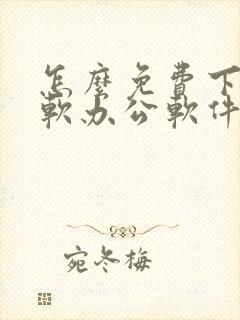 怎麼免費下
軟办公軟件
宛冬梅